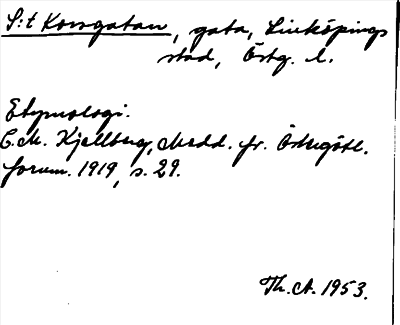 S:t Korsgatan, gata, Linköpings
stad, Östg. l.
Etymologi.
C.M. Kjellberg, Medd. fr. Östergötl.
fornm. 1919, s. 29.
Th. A. 1953.